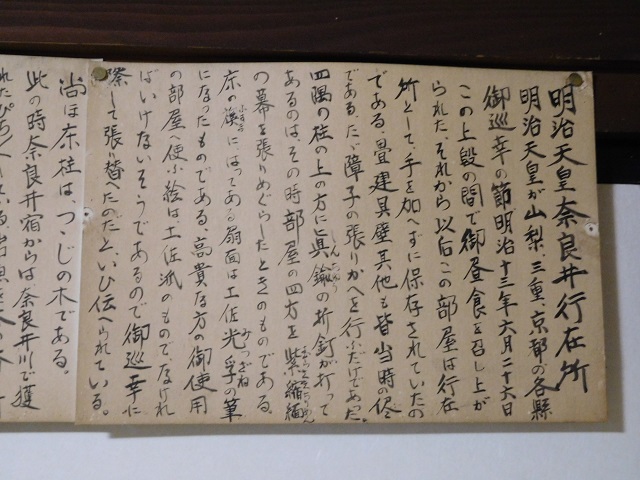 明治天皇奈良井行在所
明治天皇が山梨、三重、京都の各縣
御巡幸の節明治十三年六月二十六日
この上段の間で御昼食を召し上が
られた、それから以后この部屋は行在
所として、手を加へずに保存されていたの
である、畳建具壁其他も皆当時の侭
である、たゞ障子の張りかへを行ふだけである
四隅の柱の上の方に真鍮の折釘が打って
あるのは、その時部屋の四方を紫縮緬
の幕を張りめぐらしたときのものである。
次の襖にはってある扇面は土佐光孚の筆
になったものである、高貴な方の御使用
の部屋へ使ふ絵は、土佐派のもので、なければ
ばいけないそうであるので御巡幸に
際して張り替へたのだと、いひ伝へられている。
尚ほ床柱は、つゝじの木である。
此の時奈良井宿からは、奈良井川で獲
れた